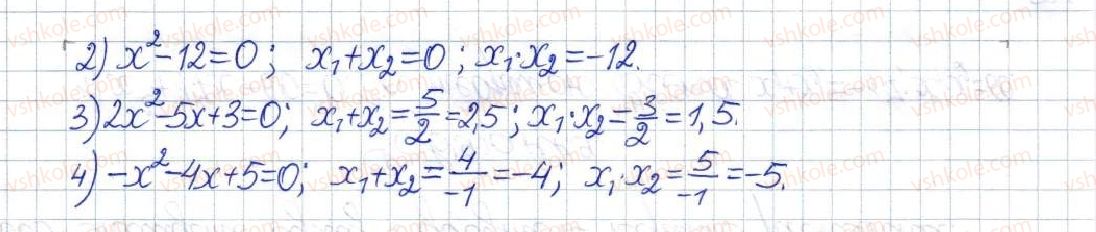 2) x²-12=0; x₁+x₂=0; x₁·x₂=-12.
3) 2x²-5x+3=0; x₁+x₂=5/2=2,5; x₁·x₂=3/2=1,5.
4) -x²-4x+5=0; x₁+x₂=4/-1=-4; x₁·x₂=5/-1=-5.